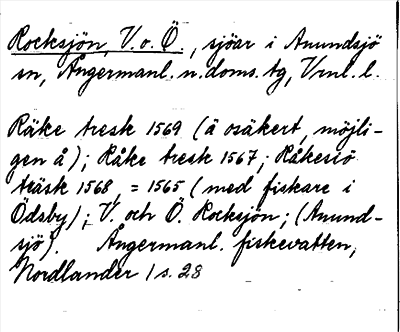 Rocksjön, V. o. Ö., sjöar i Anundsjö
sn, Ångermanl. n. doms. tg, Vrnl. l.
Räke tresk 1569 (ä osäkert, möjli-
gen å); Råke tresk 1567; Råkesiö
träsk 1568, = 1565 (med fiskare i
Ödsby); V. och Ö. Rocksjön; (Anund-
sjö). Ångermanl. fiskevatten,
Nordlander 1 s. 28